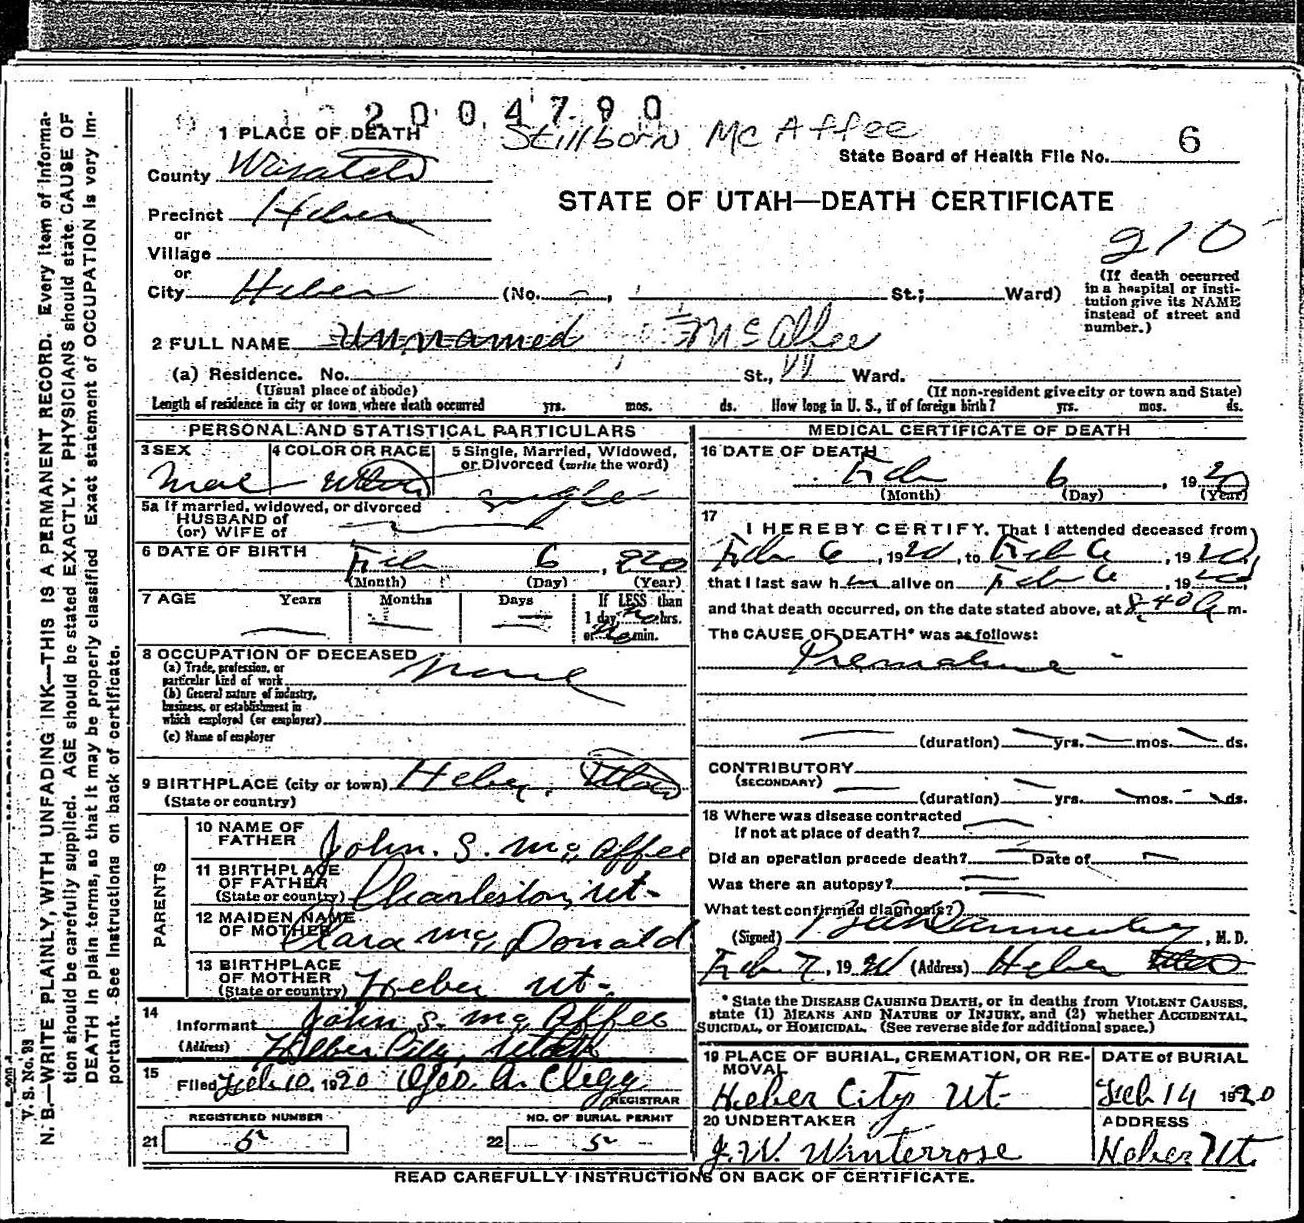 2004790
Stillborn McAffee
1 PLACE OF DEATH
State Board of Health File No. 6
County Wasatch
STATE OF UTAH—DEATH CERTIFICATE
Precinct Heber
210
or
Village
or
City Heber (No. — , St.; Ward)
(If death occurred
in a hospital or insti-
tution give its NAME
instead of street and
number.)
2 FULL NAME Unnamed McAffee
(a) Residence. No. St., Ward.
(Usual place of abode) (If non-resident give city or town and State)
Length of residence in city or town where death occurred yrs. mos. ds. How long in U. S., if of foreign birth? yrs. mos. ds.
PERSONAL AND STATISTICAL PARTICULARS
3 SEX 4 COLOR OR RACE 5 Single, Married, Widowed,
or Divorced (write the word)
Male White single
5a If married, widowed, or divorced
HUSBAND of
(or) WIFE of
6 DATE OF BIRTH Feb 6, 920
(Month) (Day) (Year)
7 AGE Years Months Days If LESS than
1 day, no hrs.
or no min.
8 OCCUPATION OF DECEASED None
(a) Trade, profession, or
particular kind of work
(b) General nature of industry,
business, or establishment in
which employed (or employer)
(c) Name of employer
9 BIRTHPLACE (city or town) Heber, Utah
(State or country)
PARENTS
10 NAME OF
FATHER John. S. McAffee
11 BIRTHPLACE
OF FATHER
(State or country) Charleston, Ut-
12 MAIDEN NAME
OF MOTHER Clara McDonald
13 BIRTHPLACE
OF MOTHER
(State or country) Heber Ut-
14 Informant John S. McAffee
(Address) Heber City, Utah
15 Filed Feb 10, 1920 Geo. A. Clegg
REGISTRAR
REGISTERED NUMBER NO. OF BURIAL PERMIT
21 5 22 5
MEDICAL CERTIFICATE OF DEATH
16 DATE OF DEATH
Feb 6, 1920
(Month) (Day) (Year)
17
I HEREBY CERTIFY, That I attended deceased from
Feb 6, 1920, to Feb 6, 1920,
that I last saw h im alive on Feb 6, 1920
and that death occurred, on the date stated above, at 8.40 A m.
The CAUSE OF DEATH* was as follows:
Premature
(duration) yrs. mos. ds.
CONTRIBUTORY
(SECONDARY)
(duration) yrs. mos. ds.
18 Where was disease contracted
If not at place of death?
Did an operation precede death? Date of
Was there an autopsy?
What test confirmed diagnosis?
(Signed) , M. D.
Feb 7, 1920 (Address) Heber Utah
* State the DISEASE CAUSING DEATH, or in deaths from VIOLENT CAUSES,
state (1) MEANS AND NATURE OF INJURY, and (2) whether ACCIDENTAL,
SUICIDAL, or HOMICIDAL. (See reverse side for additional space.)
19 PLACE OF BURIAL, CREMATION, OR RE-
MOVAL
Heber City Ut-
DATE of BURIAL
Feb 14 1920
20 UNDERTAKER
J. W. Winterrose
ADDRESS
Heber Ut.
READ CAREFULLY INSTRUCTIONS ON BACK OF CERTIFICATE.
V. S. No. 93
N. B.—WRITE PLAINLY, WITH UNFADING INK—THIS IS A PERMANENT RECORD. Every item of informa-
tion should be carefully supplied. AGE should be stated EXACTLY. PHYSICIANS should state CAUSE OF
DEATH in plain terms, so that it may be properly classified. Exact statement of OCCUPATION is very im-
portant. See instructions on back of certificate.